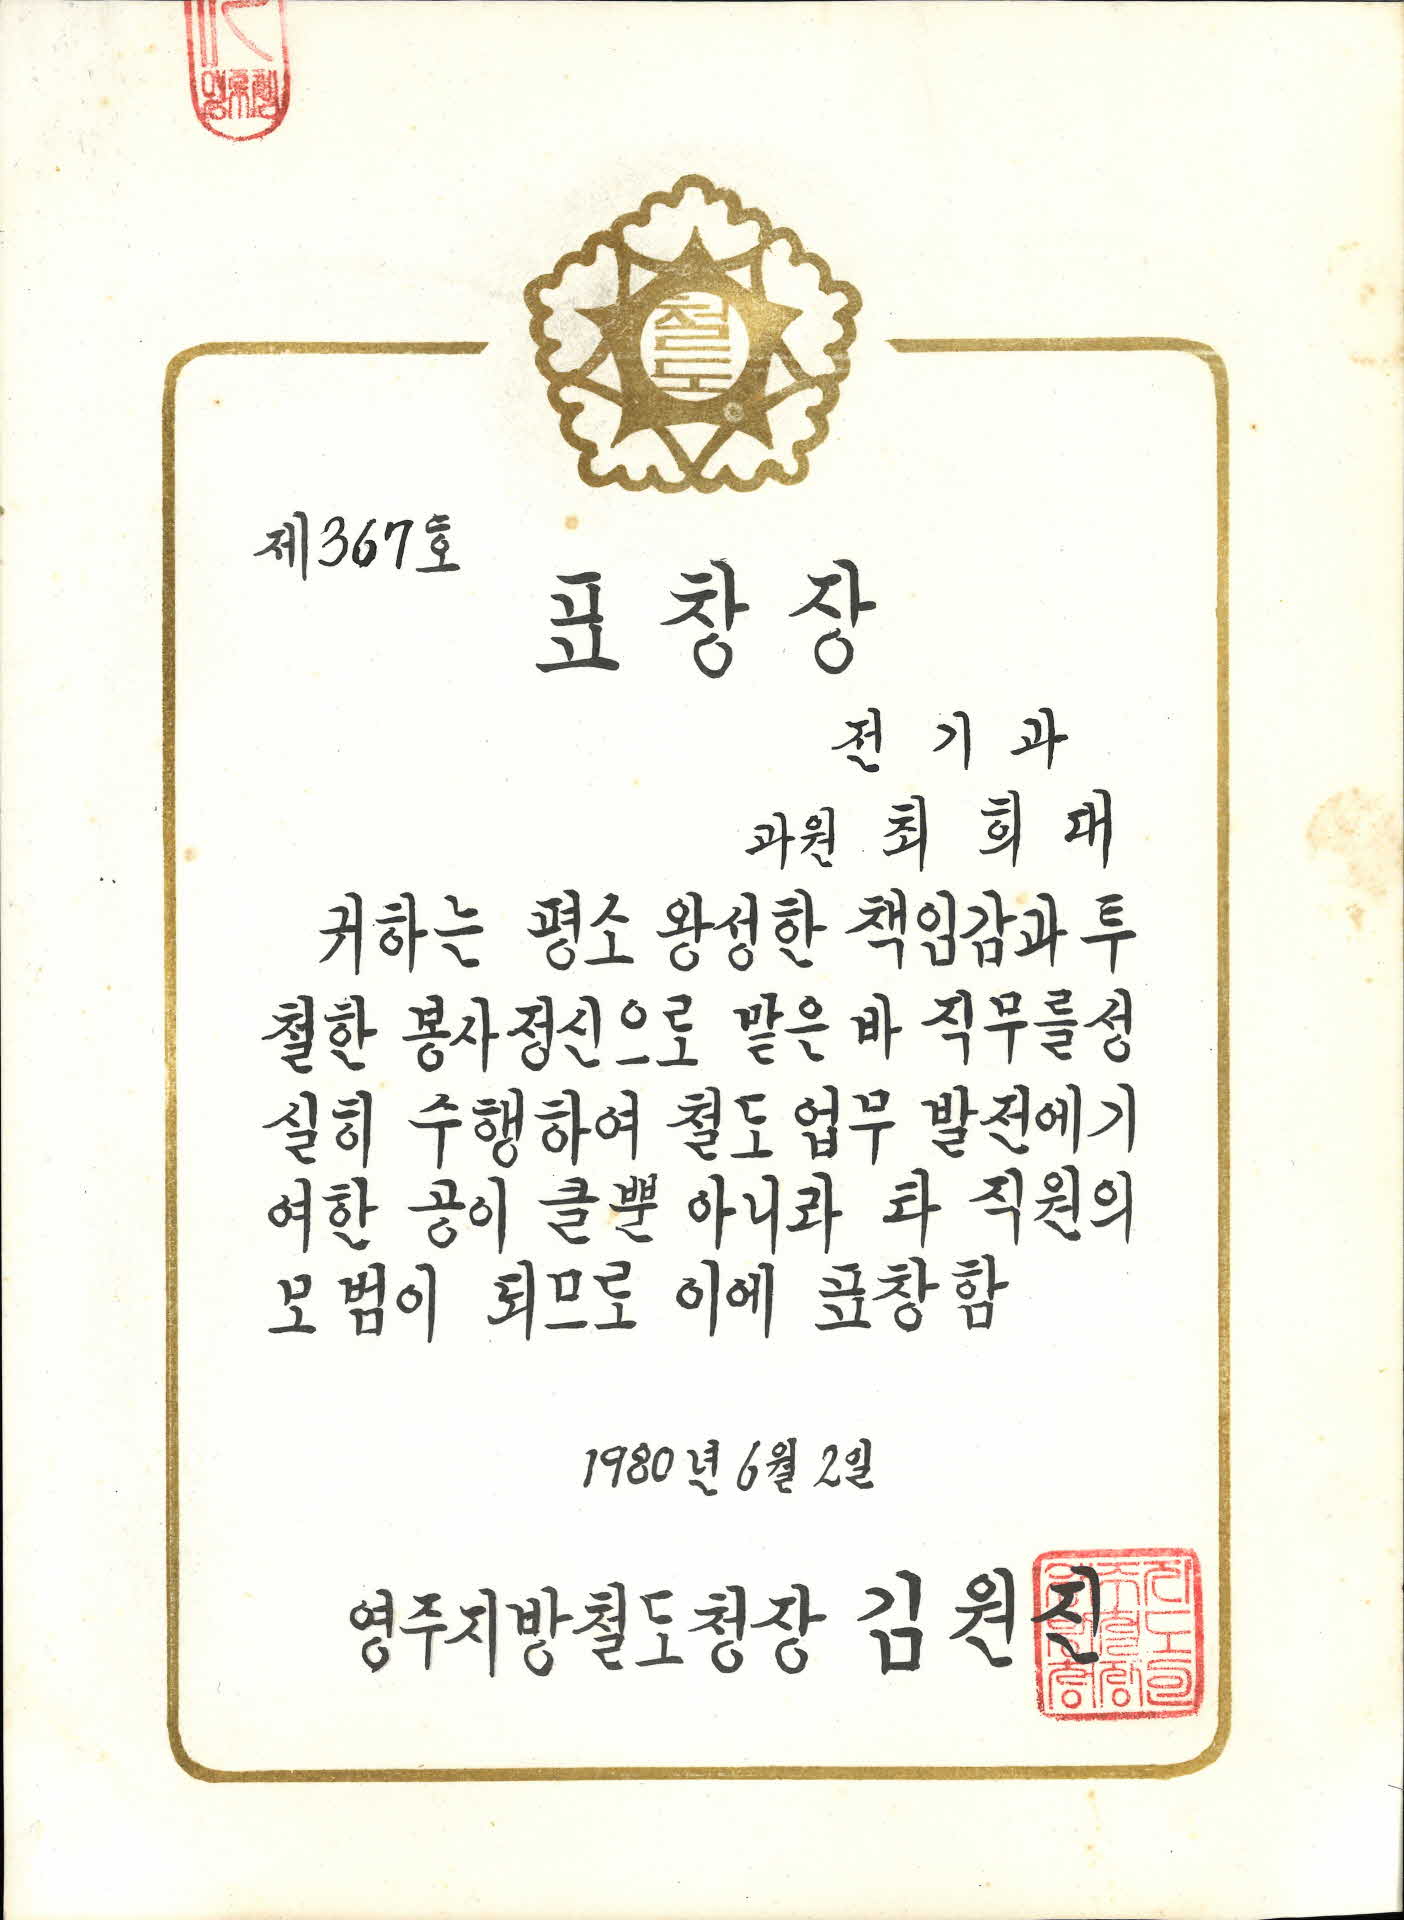 철도
제367호
표창장
전기과
과원 최희대
귀하는 평소 왕성한 책임감과 투
철한 봉사정신으로 맡은 바 직무를 성
실히 수행하여 철도업무 발전에 기
여한 공이 클뿐 아니라 타 직원의
모범이 되므로 이에 표창함
1980년 6월 2일
영주지방철도청장 김원진